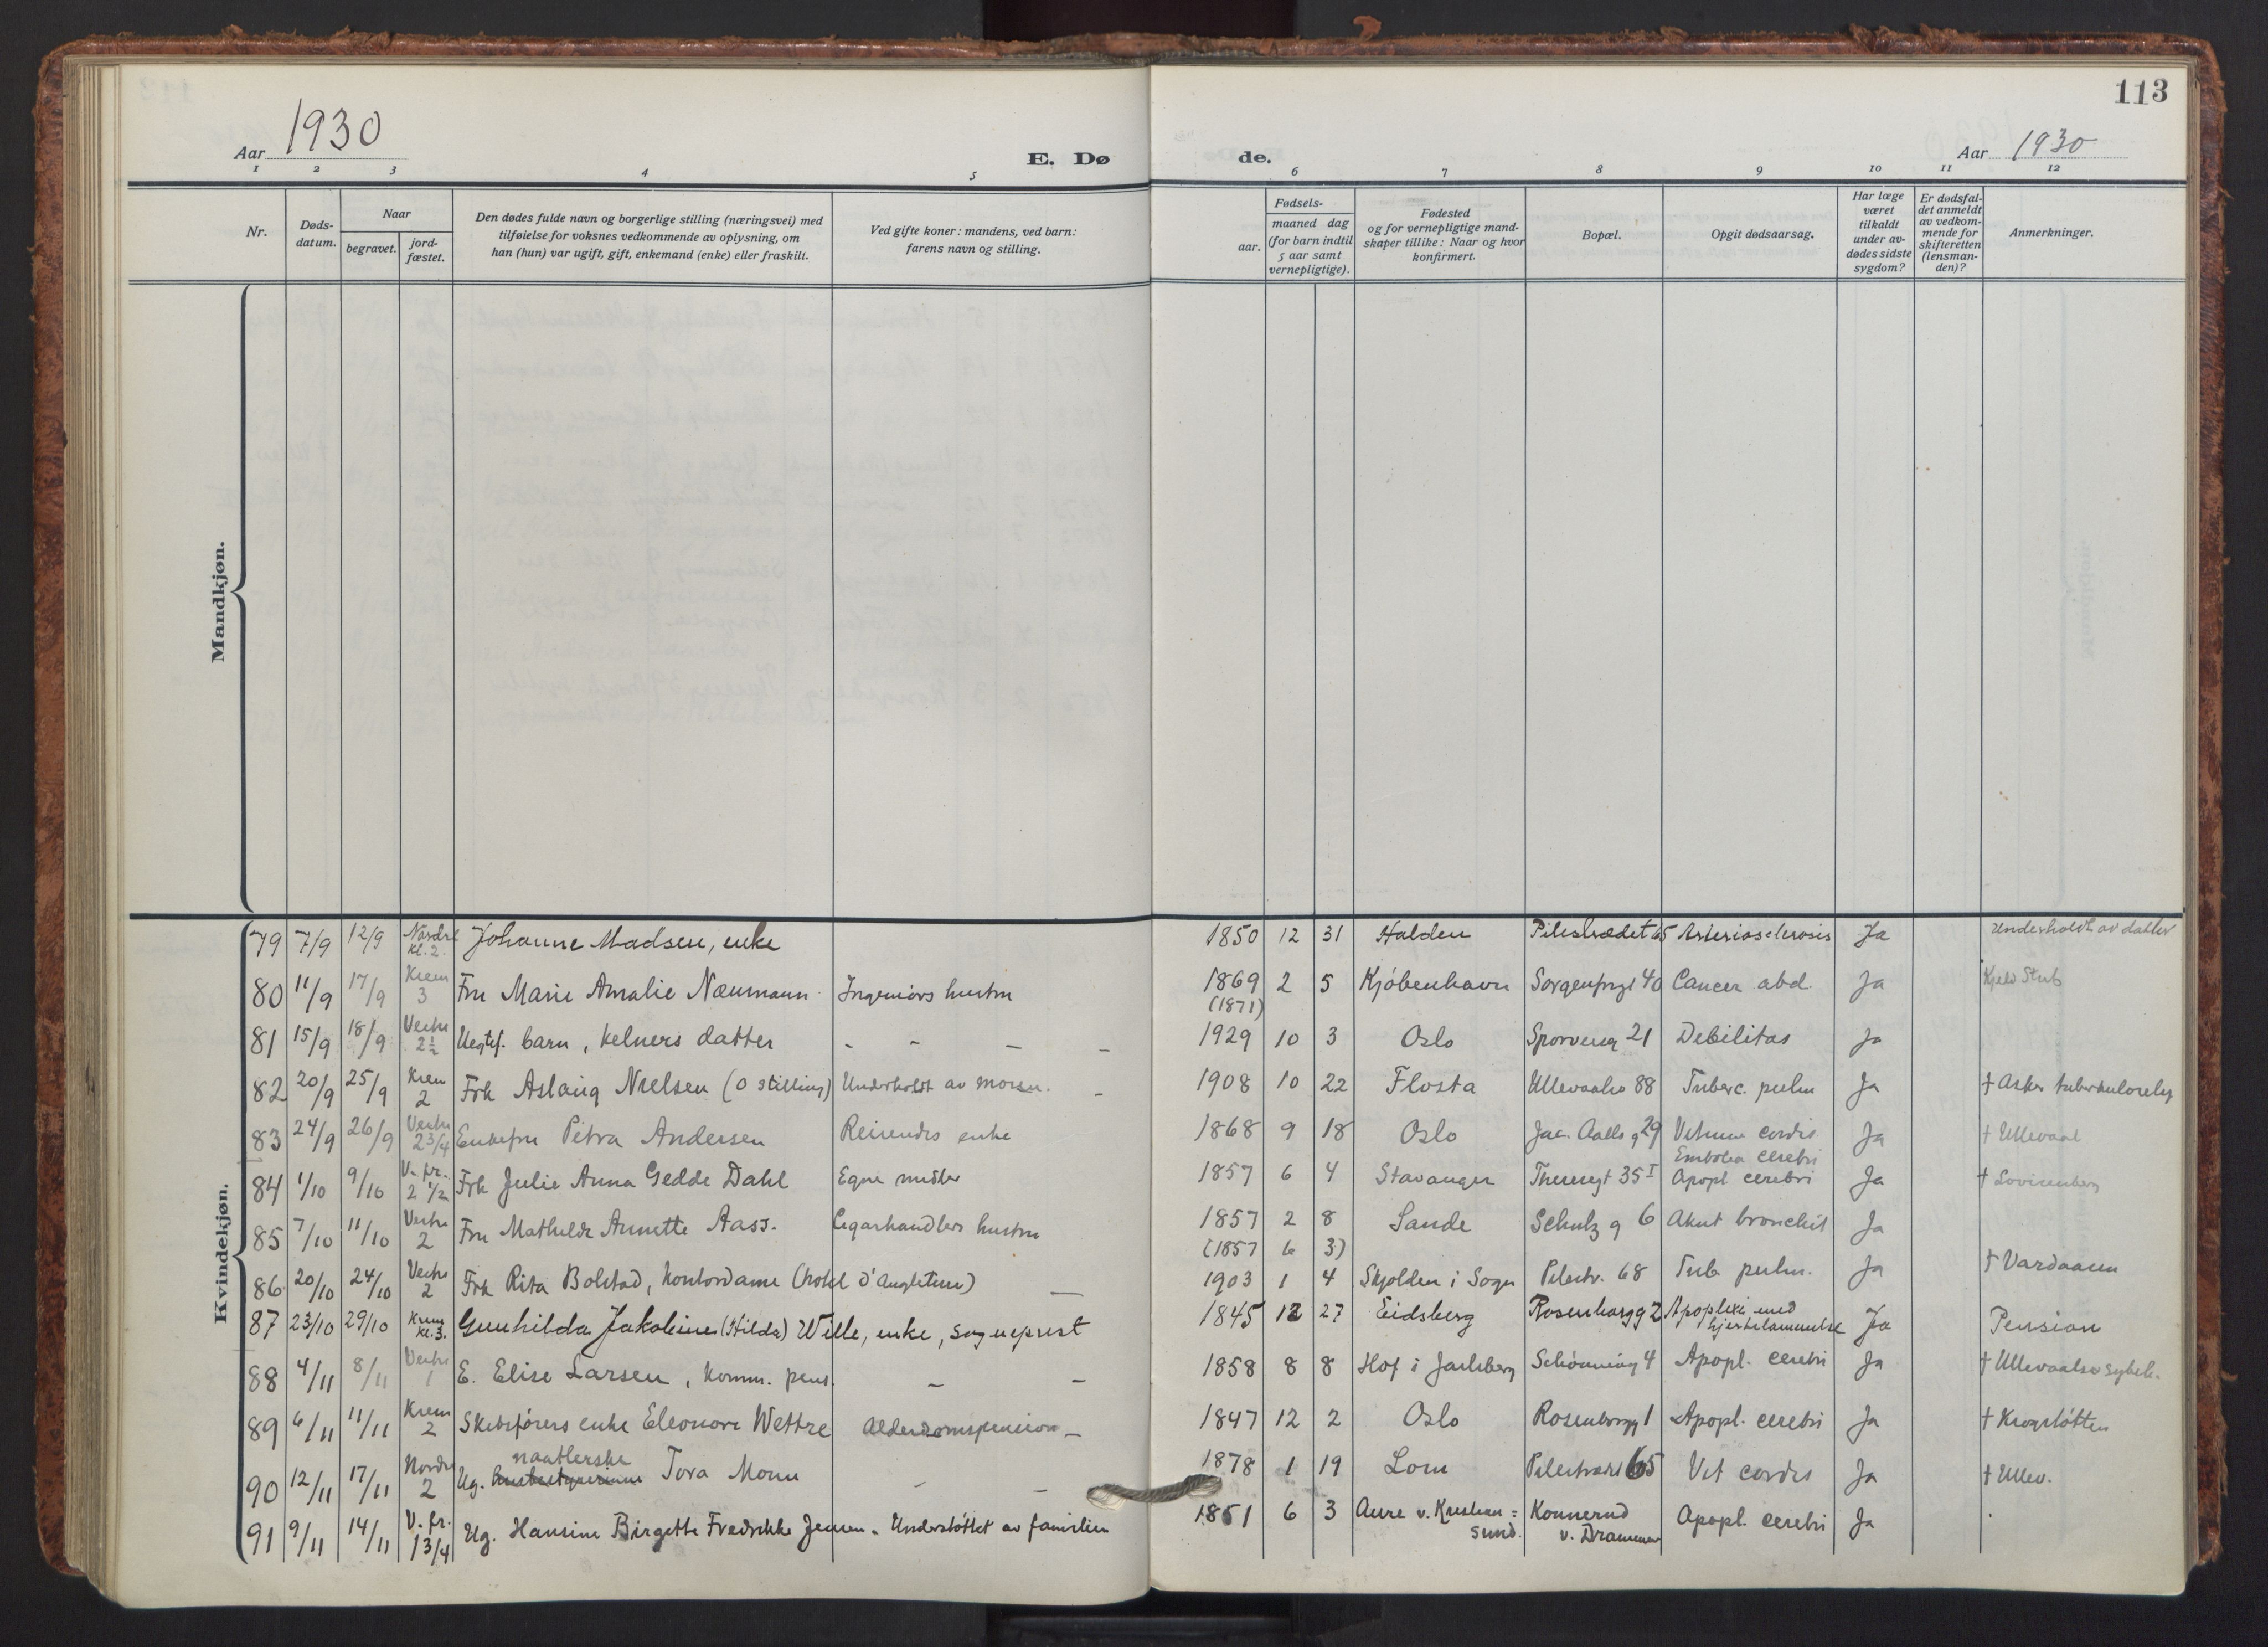 113
Aar 1930
E. Dø
de.
Aar 1930
1 2 3 4 5 6 7 8 9 10 11 12
Nr.
Døds-
datum.
Naar
begravet.
jord-
fæstet.
Den dødes fulde navn og borgerlige stilling (næringsvei) med
tilføielse for voksnes vedkommende av oplysning, om
han (hun) var ugift, gift, enkemand (enke) eller fraskilt.
Ved gifte koner: mandens, ved barn:
farens navn og stilling.
aar.
Fødsels-
maaned dag
(for barn indtil
5 aar samt
vernepligtige).
Fødested
og for vernepligtige mand-
skaper tillike: Naar og hvor
konfirmert.
Bopæl.
Opgit dødsaarsag.
Har læge
været
tilkaldt
under av-
dødes sidste
sygdom?
Er dødsfal-
det anmeldt
av vedkom-
mende for
skifteretten
(lensman-
den)?
Anmerkninger.
Mandkjøn.
Kvindekjøn.
79 7/9 12/9 Nordre kl. 2. Johanne Madsen, enke 1850 12 31 Halden Pilestrædet 65 Arteriosclerosis Ja Underholdt av datter
80 11/9 17/9 Krem 3 Fru Marie Amalie Næumann Ingeniørs hustru 1869 (1871) 2 5 Kjøbenhavn Sorgenfrigt 40 Cancer abd. Ja Kjeld Stub
81 15/9 18/9 Vestre 2½ Uegtef. barn, kelners datter - - - - 1929 10 3 Oslo Sporveisg 21 Debilitas Ja
82 20/9 25/9 Krem 2 Frk Aslaug Nielsen (0 stilling) Underholdt av moren. - 1908 10 22 Flosta Ullevaalsv 88 Tuberc. pulm Ja † Asker tuberkulosehj
83 24/9 26/9 Vestre 2 3/4 Enkefru Petra Andersen Reisendes enke 1868 9 18 Oslo Jac. Aalls g 29 Vitium cordis Embolia cerebri Ja † Ullevaal
84 1/10 9/10 V. fr. 2 1/2 Frk Julie Anna Gedde Dahl Egne midler 1857 6 4 Stavanger Theresegt 35 I Apopl cerebri Ja † Lovisenberg
85 7/10 11/10 Vestre 2 Fru Mathilde Annette Aass. Cigarhandlers hustru 1857 2 8 (1857 6 3) Sande Schulz g 6 Akut bronchit Ja
86 20/10 24/10 Vestre 2 Frk Rita Bolstad, kontordame (hotel d'Angleterre) — 1903 1 4 Skjolden i Sogn Pilestr. 68 Tub. pulm. Ja † Vardaasen
87 23/10 29/10 Krem kl. 3. Gunhilda Jakobine (Hilda) Wille, enke, sogneprest 1845 12 27 Eidsberg Rosenborgg 2 Apoplexi med hjertelammelse Ja Pension
88 4/11 8/11 Vestre 1 E. Elise Larsen, komm. pens. - - 1858 8 8 Hof i Jarlsberg Schønning 4 Apopl. cerebri Ja † Ullevaals sykeh.
89 6/11 11/11 Krem 2 Skibsførers enke Eleonore Wettre Alderdomspension - 1847 12 2 Oslo Rosenborgg 1 Apopl. cerebri Ja † Krogstøtten
90 12/11 17/11 Nordre 2 Ug. naatlerske Tora Moun - - 1878 1 19 Lom Pilestrædet 65 Vit cordis Ja † Ullev.
91 9/11 14/11 V. fr. 1 3/4 Ug. Hansine Birgitte Fredrikke Jensen. Understøttet av familien 1851 6 3 Aure v. Kristian=sund. Konnerud v. Drammen Apopl. cerebri Ja